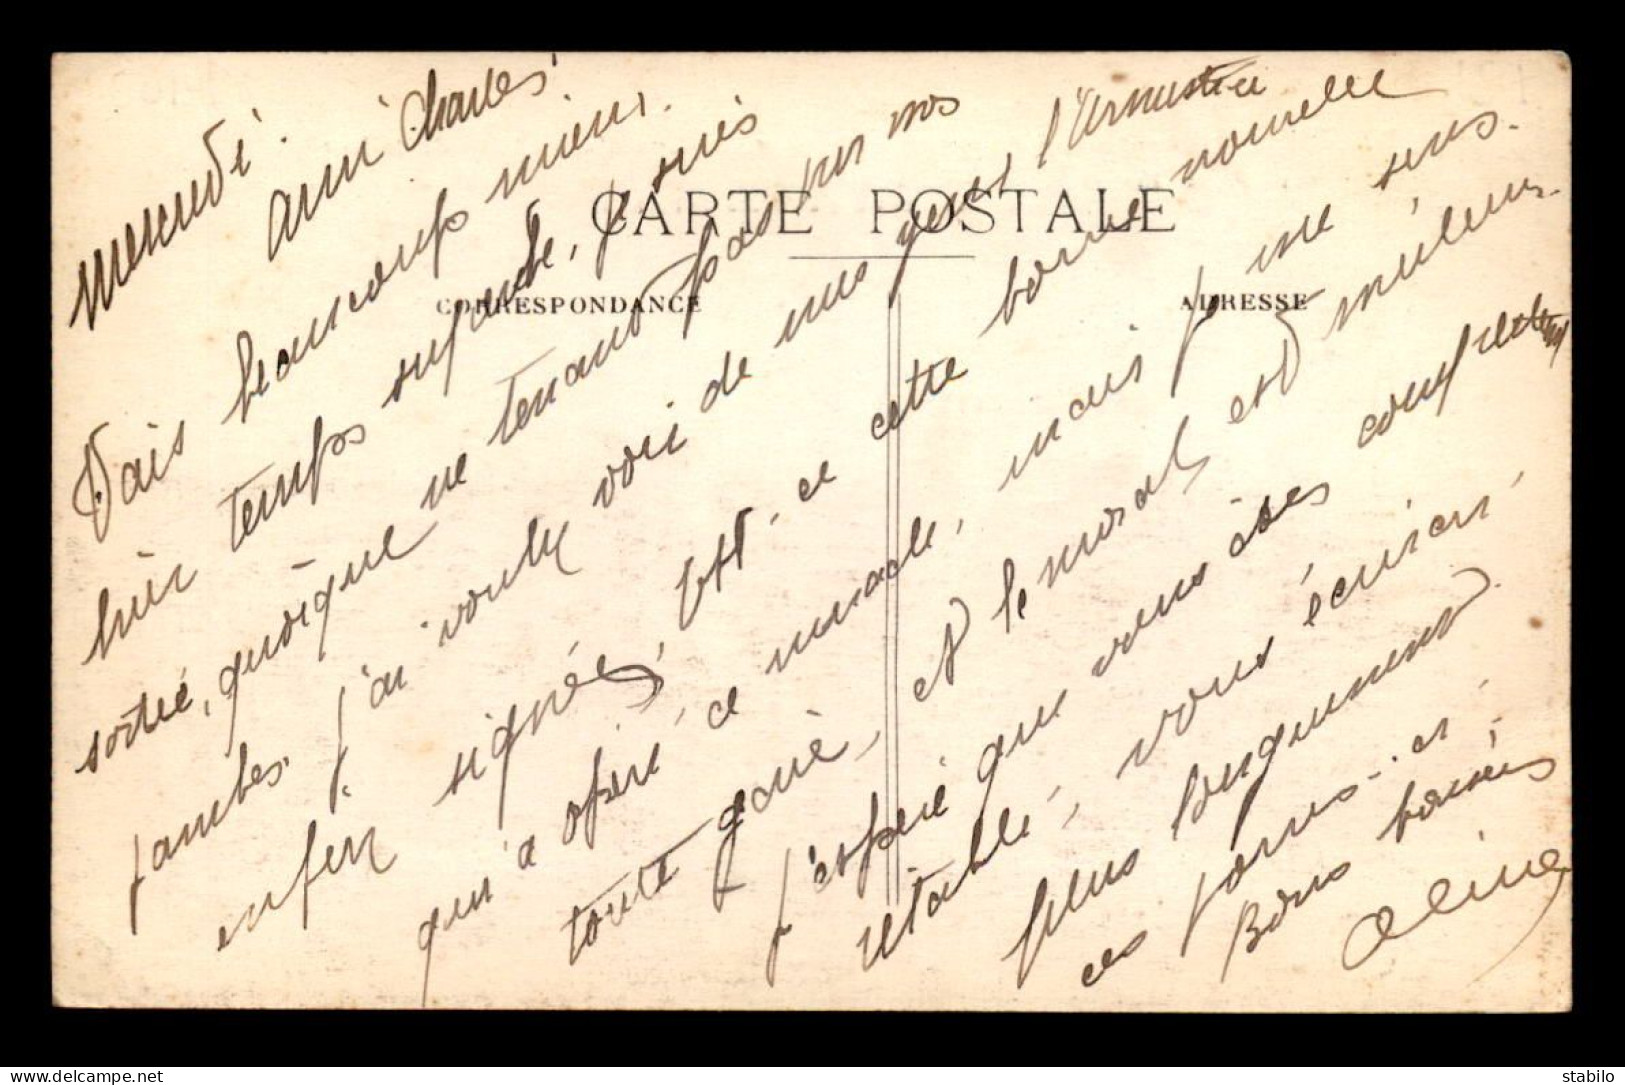 mercredi.
ami Charles
Vais beaucoup mieux.
hier temps superbe, je suis
sortie, quoique ne tenant pas sur mes
jambes. j'ai voulu voir de mes yeux l'Armistice
enfin signée, Est-ce cette bonne nouvelle
qui a opéré ce miracle, mais je me sens
toute gaie, et le moral est meilleur.
j'espère que vous êtes complètem
rétabli, vous écrirai
plus longuement
ces jours-ci,
Bons baisers
Aline
CARTE POSTALE
CORRESPONDANCE
ADRESSE
stabilo
Delcampe.net